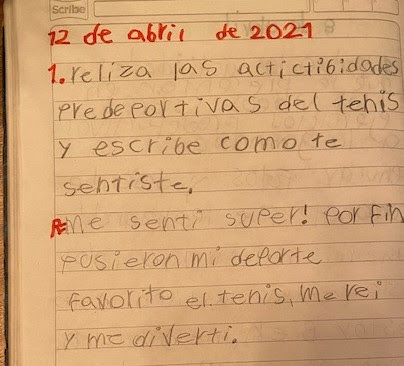 Scribe
12 de abril de 2021
1. reliza las actictibidades
predeportivas del tenis
y escribe como te
sentiste.
R=Me senti super! por fin
pusieron mi deporte
favorito el tenis, me rei
y me diverti.